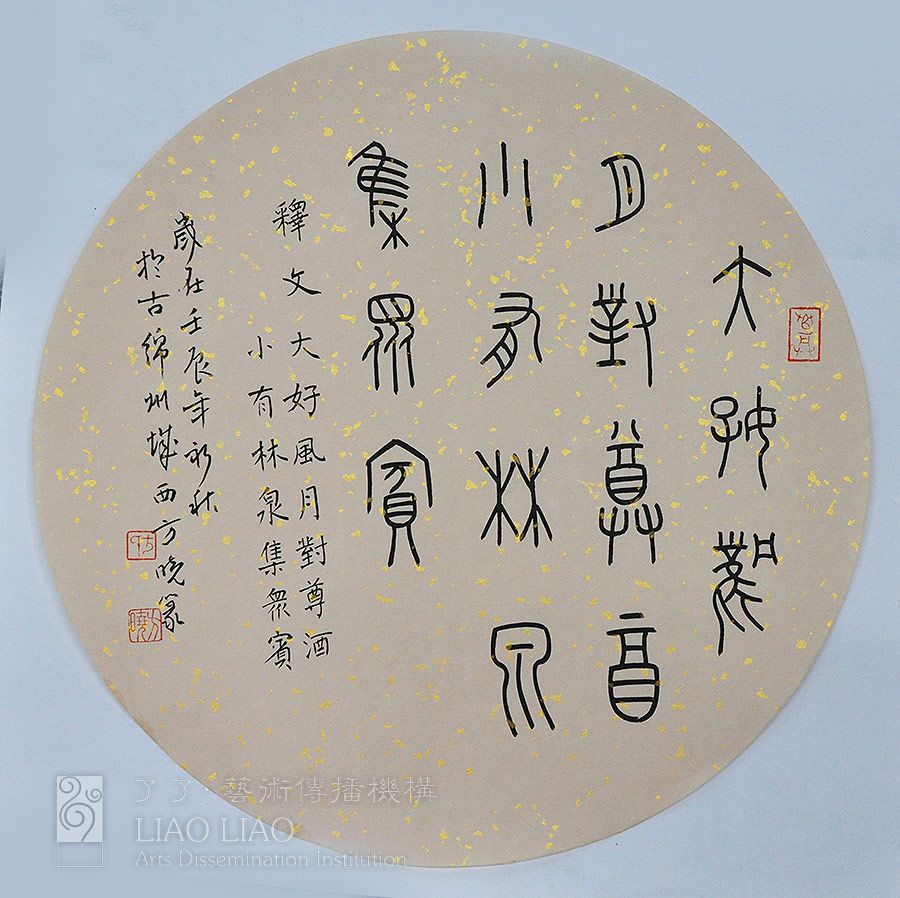 大好風
月對尊酒
小有林泉
集眾賓
釋文 大好風月對尊酒
小有林泉集眾賓
歲在壬辰年初秋
於古綿州城西方曉篆
了了·藝術傳播機構
LIAO LIAO
Arts Dissemination Institution